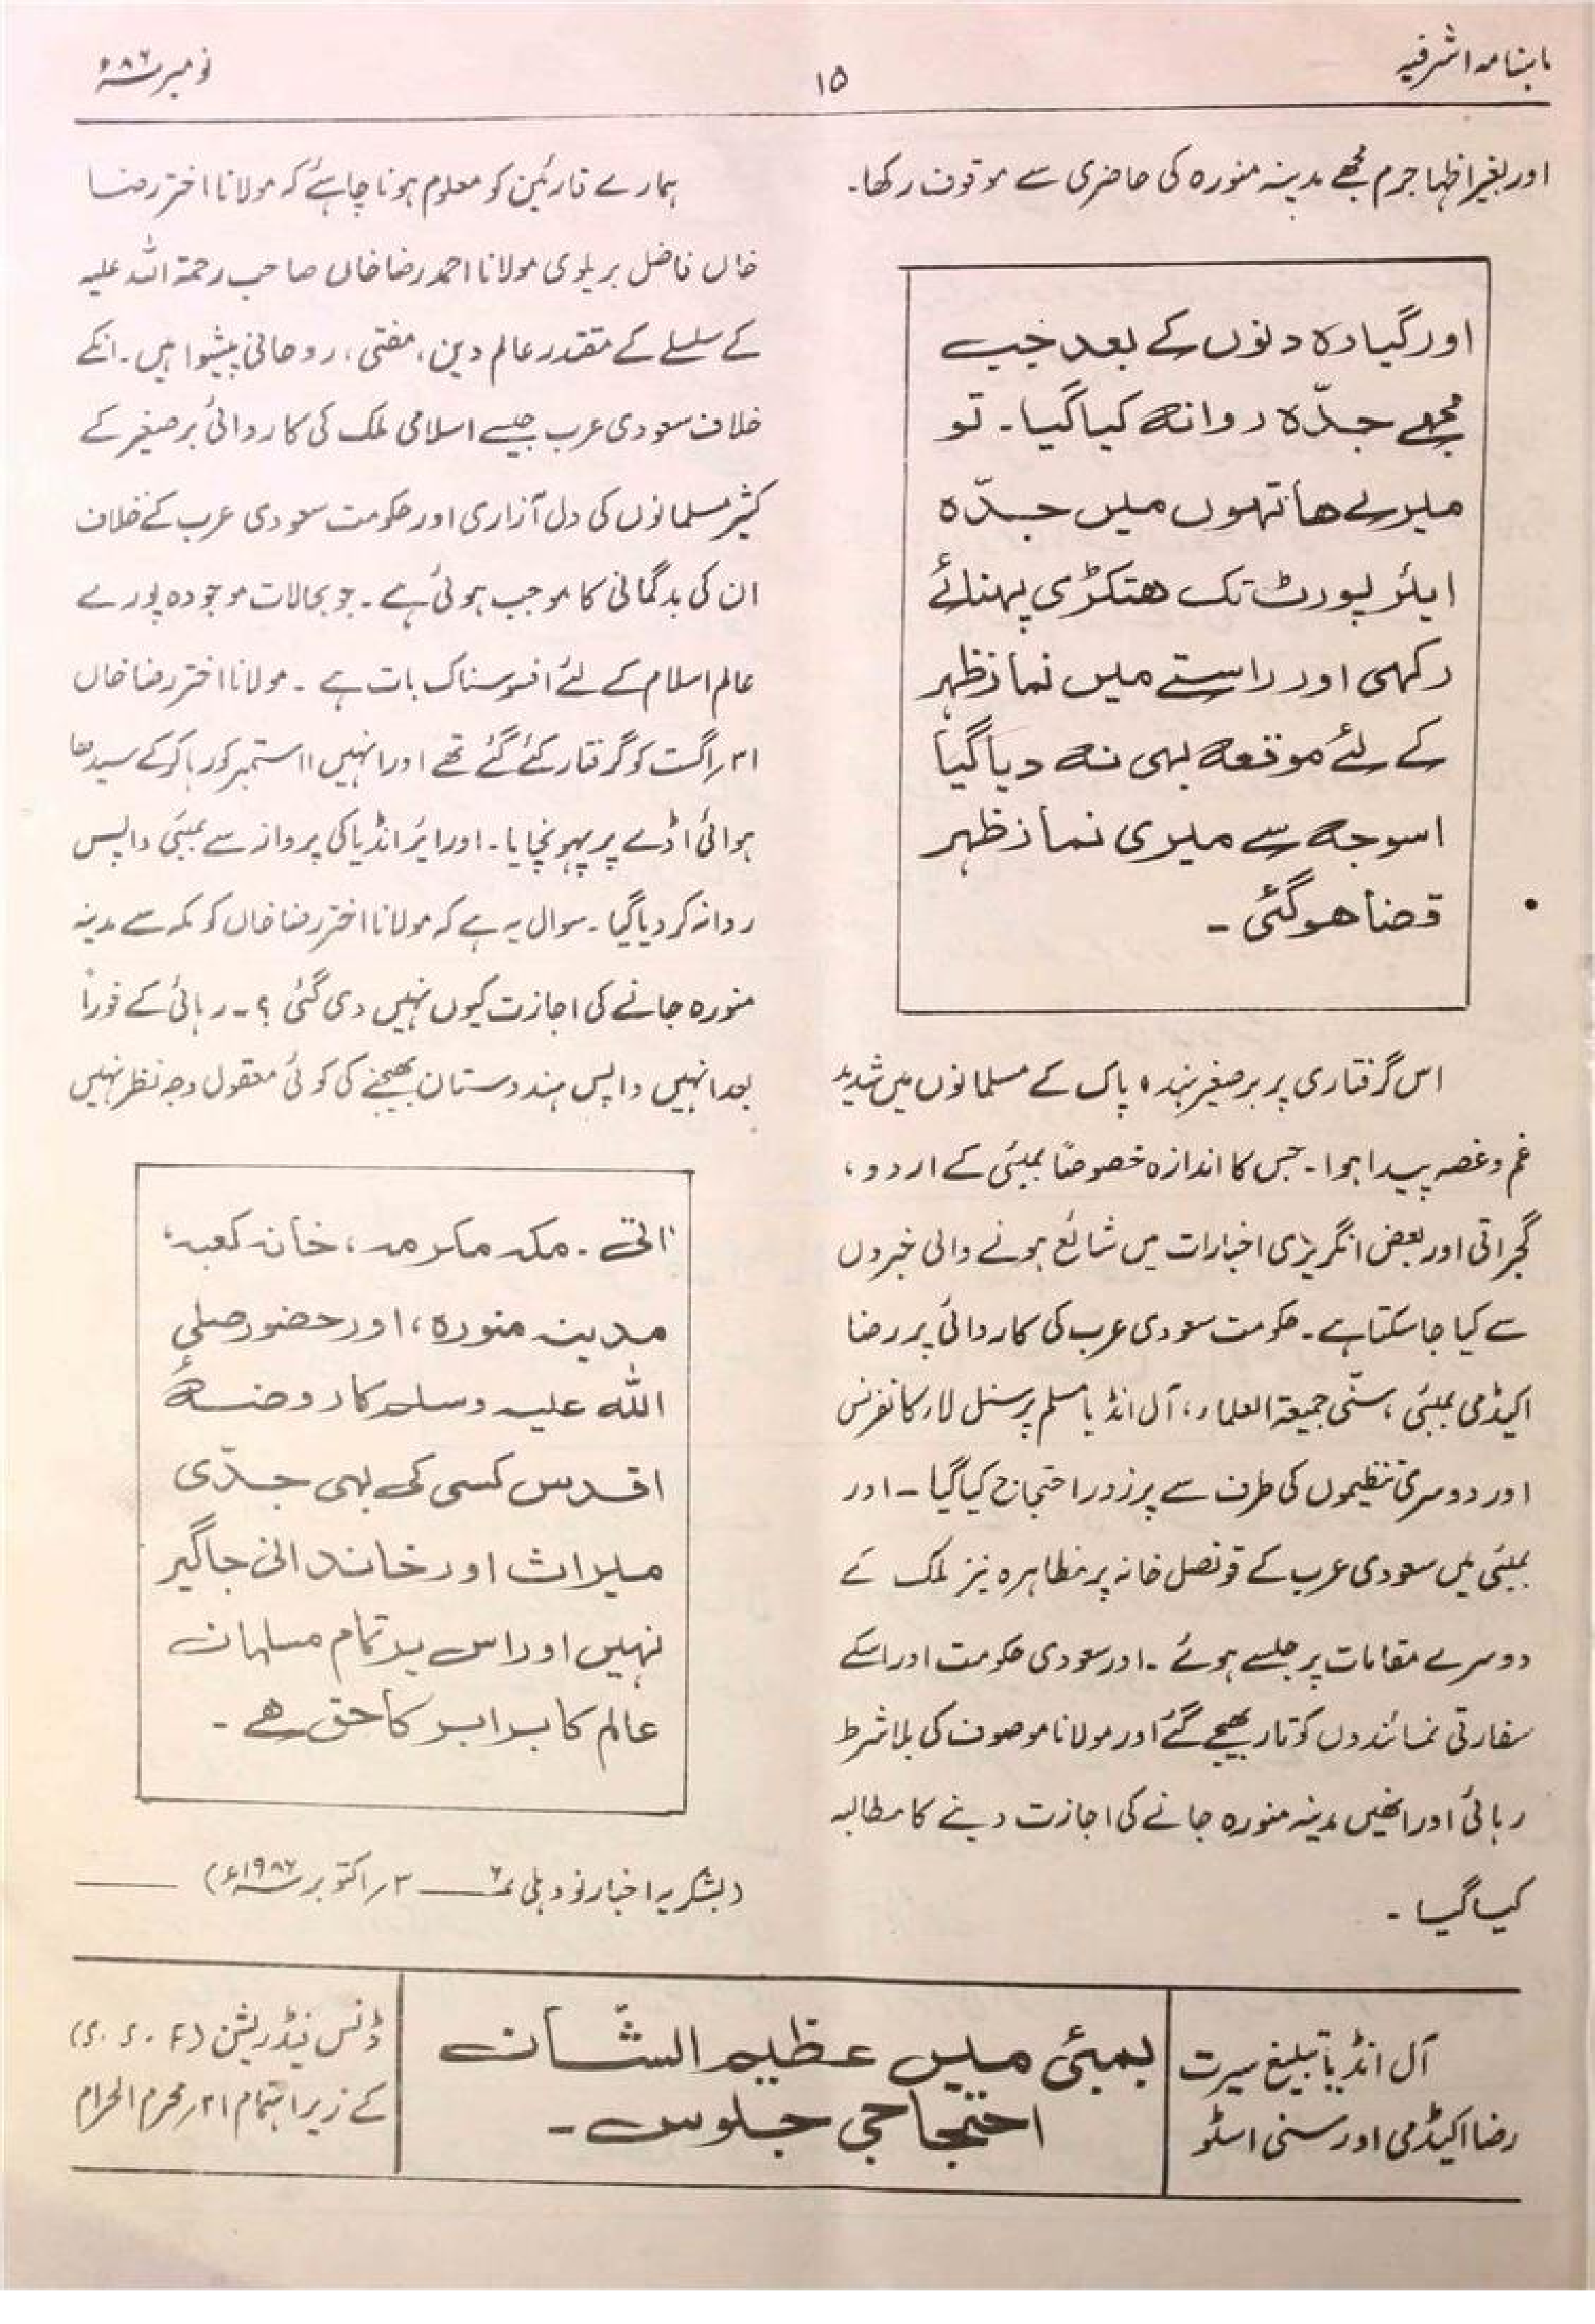 ماہنامہ اشرفیہ
۱۵
نومبر ۸۶ء
اور بغیر اظہار جرم مجھے مدینہ منورہ کی حاضری سے موقوف رکھا۔
اور گیارہ دنوں کے بعد جب
مجھے جدّہ روانہ کیا گیا۔ تو
میرے ہاتھوں میں جدّہ
ایئر پورٹ تک ہتکڑی پہنائے
رکھی اور راستے میں نماز ظہر
کے لئے موقعہ بھی نہ دیا گیا
اسوجہ سے میری نماز ظہر
قضا ہوگئی ۔
اس گرفتاری پر برصغیر ہند و پاک کے مسلمانوں میں شدید
غم و غصہ پیدا ہوا۔ جس کا اندازہ خصوصًا بمبئی کے اردو،
گجراتی اور بعض انگریزی اخبارات میں شائع ہونے والی خبروں
سے کیا جاسکتا ہے۔ حکومت سعودی عرب کی کاروائی پر رضا
اکیڈمی بمبئی، سنّی جمیعۃ العلماء، آل انڈیا مسلم پرسنل لاء کانفرنس
اور دوسری تنظیموں کی طرف سے پرزور احتجاج کیا گیا ۔ اور
بمبئی میں سعودی عرب کے قونصل خانہ پر مظاہرہ نیز ملک کے
دوسرے مقامات پر جلسے ہوئے ۔ اور سعودی حکومت اور اسکے
سفارتی نمائندوں کو تار بھیجے گئے اور مولانا موصوف کی بلا شرط
رہائی اور انھیں مدینہ منورہ جانے کی اجازت دینے کا مطالبہ
کیا گیا ۔
ہمارے قارئین کو معلوم ہونا چاہئے کہ مولانا اختر رضا
خاں فاضل بریلوی مولانا احمد رضا خاں صاحب رحمۃ اللہ علیہ
کے سلسلے کے مقتدر عالم دین، مفتی، روحانی پیشوا ہیں۔ انکے
خلاف سعودی عرب جیسے اسلامی ملک کی کاروائی برصغیر کے
کثیر مسلمانوں کی دل آزاری اور حکومت سعودی عرب کے خلاف
ان کی بدگمانی کا موجب ہوئی ہے۔ جو بحالات موجودہ پورے
عالم اسلام کے لئے افسوسناک بات ہے ۔ مولانا اختر رضا خاں
۳۱ اگست کو گرفتار کئے گئے تھے اور انہیں ۱۱ ستمبر کو رہا کرکے سیدھا
ہوائی اڈے پر پہونچایا۔ اور ایر انڈیا کی پرواز سے بمبئی واپس
روانہ کر دیا گیا۔ سوال یہ ہے کہ مولانا اختر رضا خاں کو مکہ سے مدینہ
منورہ جانے کی اجازت کیوں نہیں دی گئی ؟۔ رہائی کے فوراً
بعد انہیں واپس ہندوستان بھیجنے کی کوئی معقول وجہ نظر نہیں
آتی ۔ مکہ مکرمہ، خانہ کعبہ،
مدینہ منورہ، اور حضور صلی
اللہ علیہ وسلم کا روضۂ
اقدس کسی کی بھی جدّی
میراث اور خاندانی جاگیر
نہیں اور اس پر تمام مسلمان
عالم کا برابر کا حق ہے ۔
(بشکریہ اخبار نو دہلی ۶ ۳؍ اکتوبر ۱۹۸۶ء)
آل انڈیا تبلیغ سیرت
رضا اکیڈمی اور سنی اسٹو
بمبئی میں عظیم الشّان
احتجاجی جلوس۔
ڈنس فیڈریشن
کے زیر اہتمام ۲۱؍ محرم الحرام